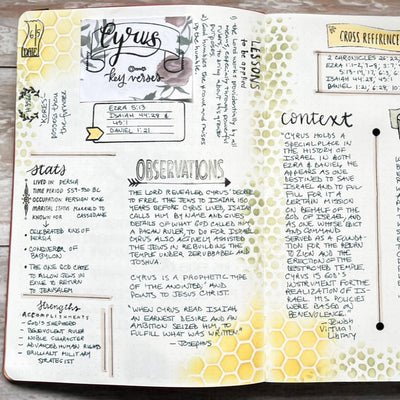 DATE
Cyrus
key verses
EZRA 5:13
ISAIAH 44:28 &
45:1
DANIEL 1:21
stats
LIVED IN PERSIA
TIME PERIOD 559-530 BC
OCCUPATION PERSIAN KING
MARITAL STATUS MARRIED TO
KNOWN FOR CASSDANE
CELEBRATED KING OF
PERSIA
CONQUEROR OF
BABYLON
THE ONE GOD CHOSE
TO ALLOW JEWS IN
EXILE TO RETURN
TO JERUSALEM
Strengths
ACCOMPLISHMENTS
- GOD'S SHEPHERD
- BENEVOLENT RULER
- NOBLE CHARACTER
- ADVANCED HUMAN RIGHTS
- BRILLIANT MILITARY
STRATEGIST
OBSERVATIONS
THE LORD REVEALED CYRUS' DECREE
TO FREE THE JEWS TO ISAIAH 150
YEARS BEFORE CYRUS LIVED. ISAIAH
CALLS HIM BY NAME AND GIVES
DETAILS OF WHAT GOD HAD CALLED
A PAGAN RULER, TO DO FOR ISRAEL.
CYRUS ALSO ACTIVELY ASSISTED
THE JEWS IN REBUILDING THE
TEMPLE UNDER ZERUBBABEL AND
JOSHUA.
CYRUS IS A PROPHETIC TYPE
OF 'THE ANOINTED' AND
POINTS TO JESUS CHRIST.
"WHEN CYRUS READ ISAIAH
AN EARNEST DESIRE AND AN
AMBITION SEIZED HIM TO
FULFILL WHAT WAS WRITTEN."
- JOSEPHUS
LESSONS
to be applied
1) the Lord works providentially by all
means, especially through powerful
rulers, to bring about his greater
2) God humbles the proud and raises
up the humble
CROSS REFERENCE
2 CHRONICLES 36:22,
DANIEL 1:21,
context
"CYRUS HOLDS A
SPECIAL PLACE IN
THE HISTORY OF
ISRAEL IN BOTH
EZRA & DANIEL. HE
APPEARS AS ONE
DESTINED TO SAVE
ISRAEL AND TO FUL
FILL FOR IT A
CERTAIN MISSION
ON BEHALF OF THE
GOD OF ISRAEL, AND
AS ONE WHOSE EDICT
AND COMMAND
SERVED AS A FOUNDA
TION FOR THE RETURN
TO ZION AND THE
ERECTION OF THE
DESTROYED TEMPLE.
CYRUS IS GOD'S
INSTRUMENT FOR THE
REALIZATION OF IS-
RAEL. HIS POLICIES
WERE BASED ON
BENEVOLENCE."
- Jewish
Virtual
Library